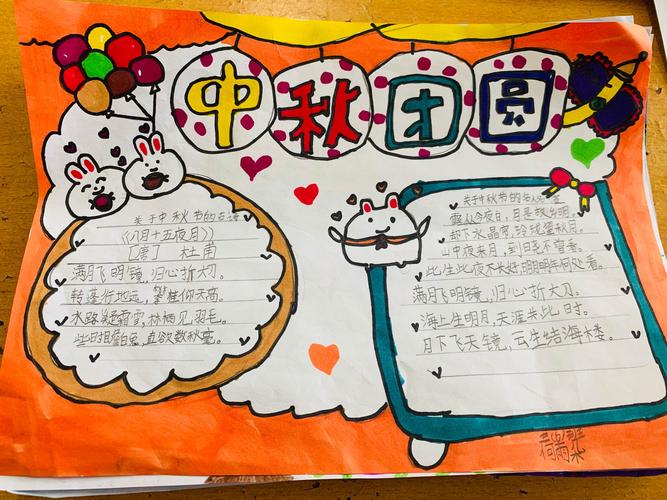 中秋团圆
关于中秋节的古诗
《八月十五夜月》
[唐] 杜甫
满月飞明镜,归心折大刀。
转蓬行地远,攀桂仰天高。
水路疑霜雪,林栖见羽毛。
此时瞻白兔,直欲数秋毫。
关于中秋节的名人名言
露从今夜白,月是故乡明。
却下水晶帘,玲珑望秋月。
山中夜来月,到晓不曾看。
此生此夜不长好,明月明年何处看。
满月飞明镜,归心折大刀。
海上生明月,天涯共此时。
月下飞天镜,云生结海楼。